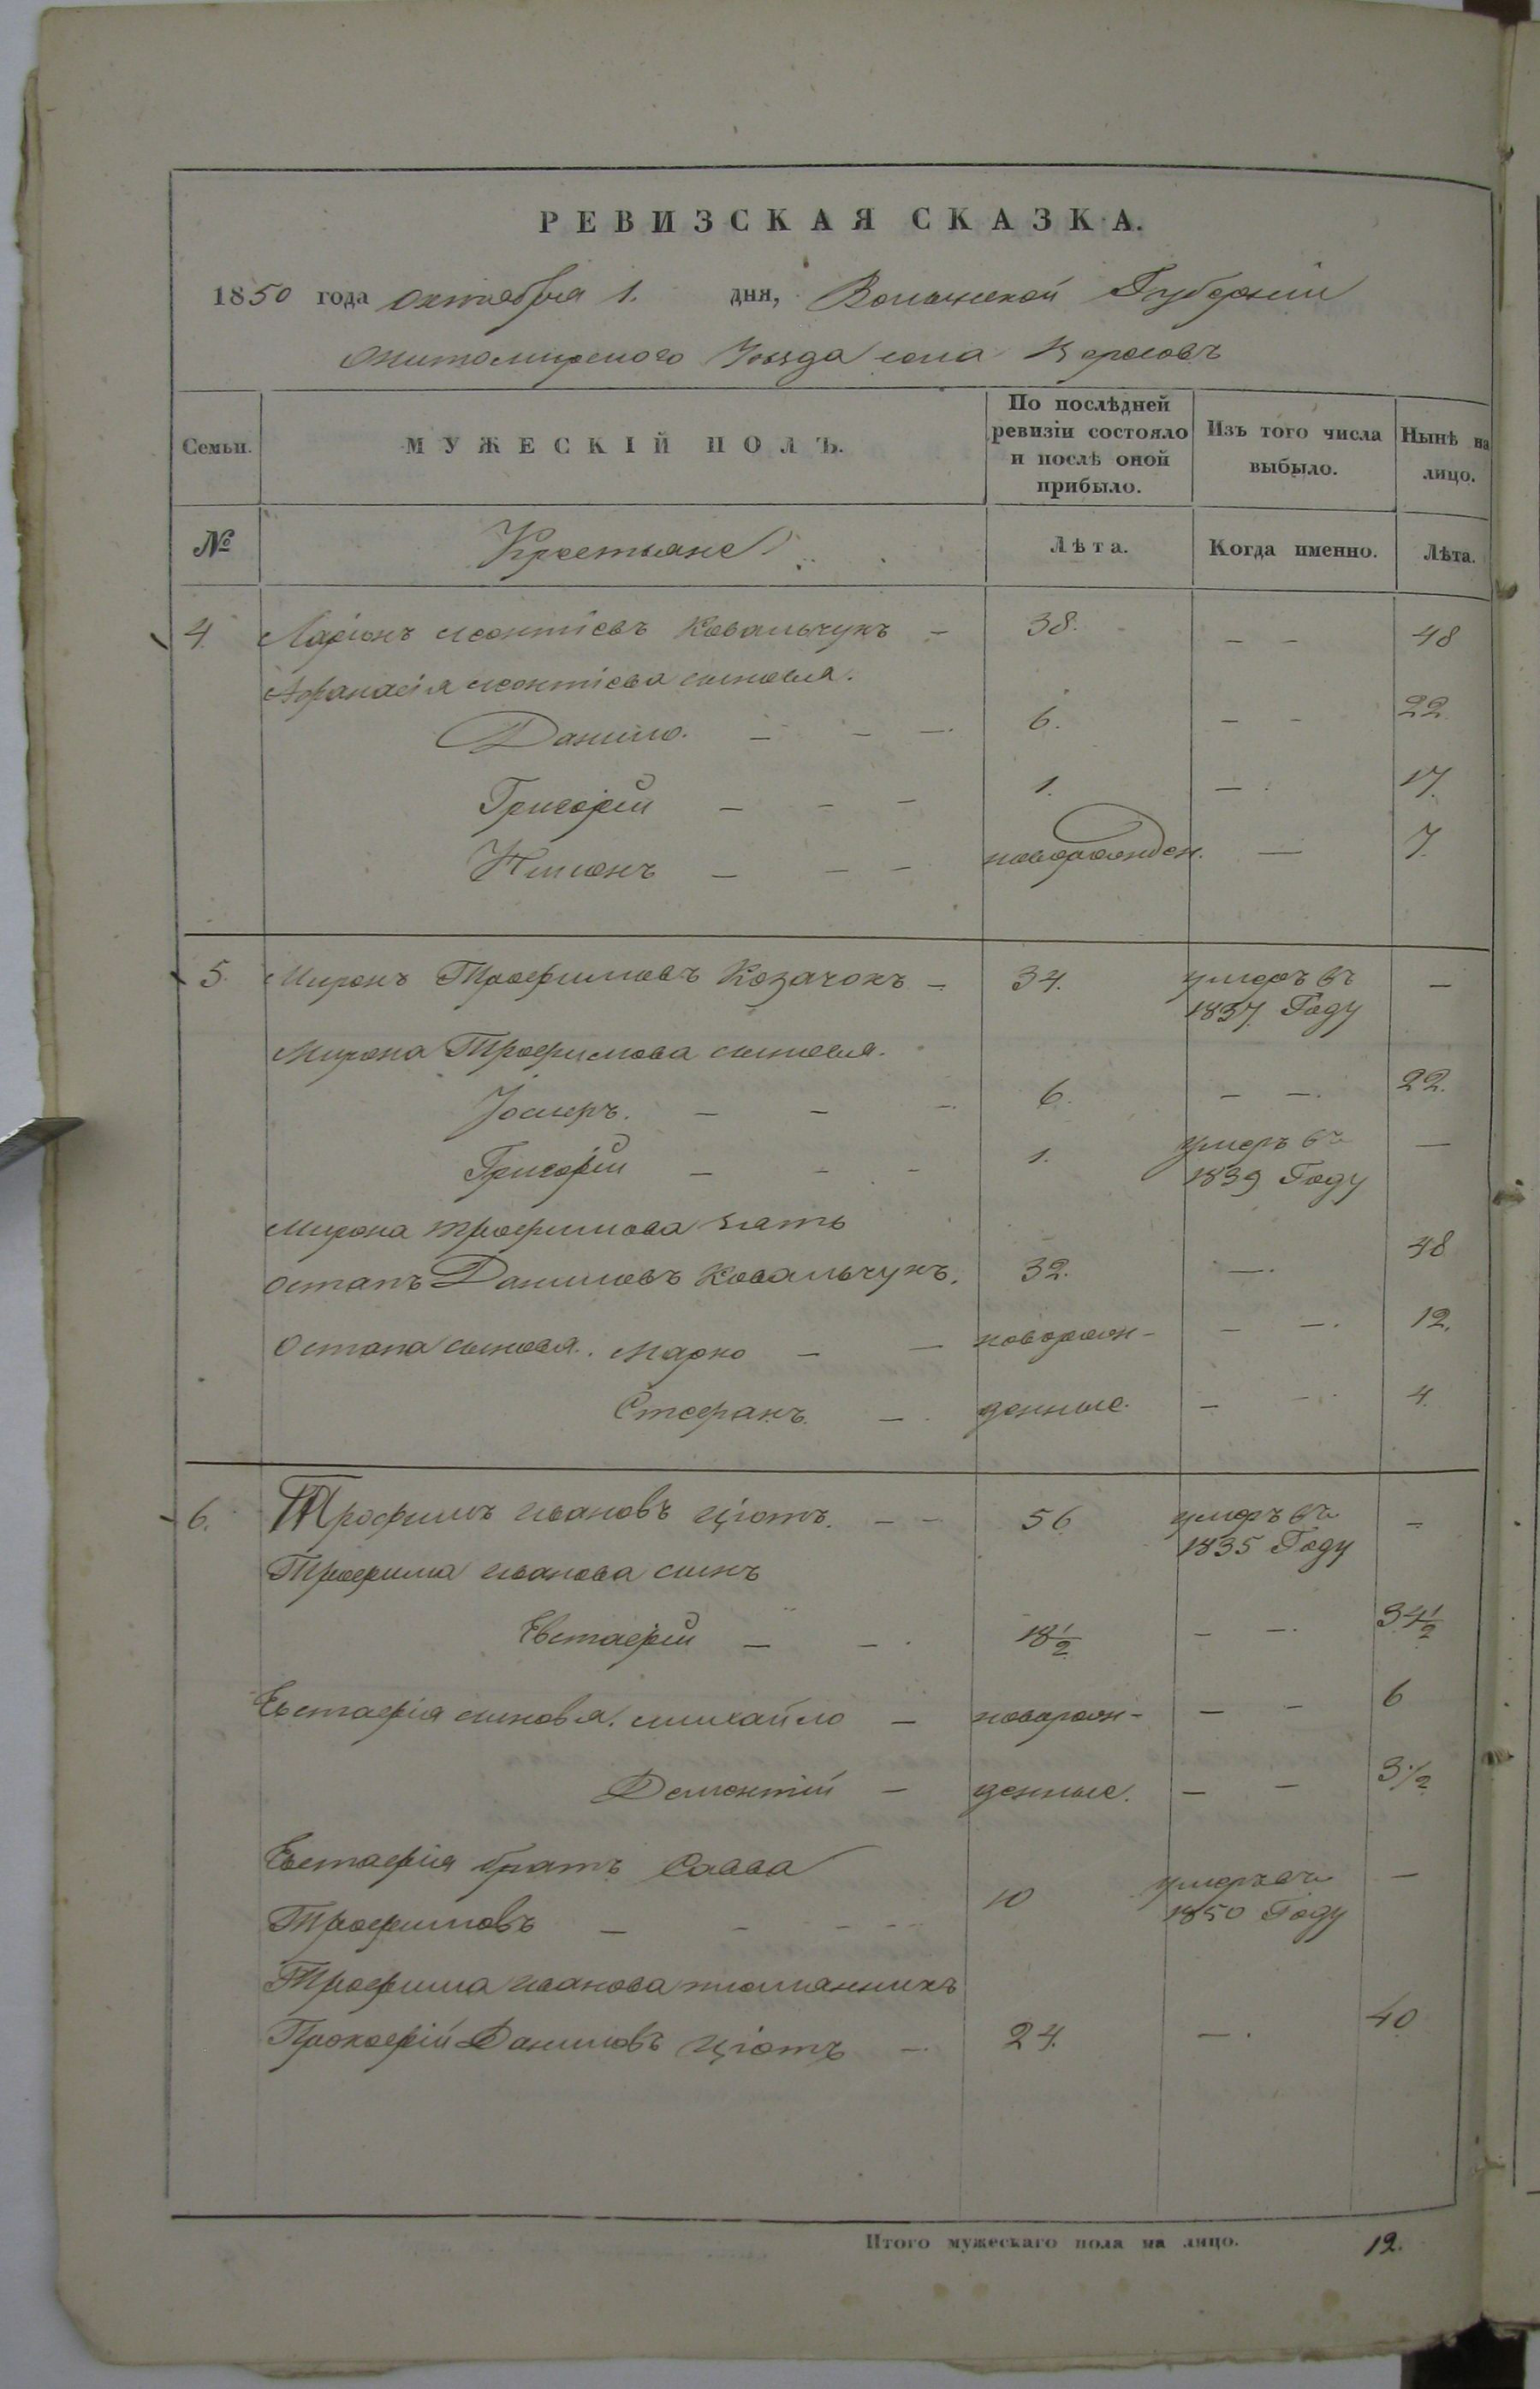 РЕВИЗСКАЯ СКАЗКА.
1850 года октября 1. дня, Волынской Губернии
Житомирского Уѣзда села
Семьи. МУЖЕСКІЙ ПОЛЪ. По послѣдней ревизіи состояло и послѣ оной прибыло. Изъ того числа выбыло. Нынѣ на лицо.
№ Крестьяне Лѣта. Когда именно. Лѣта.
4. Ларіонъ Леонтіевъ Ковальчукъ — 38. — — 48
Афанасія Леонтіева сыновья.
Данило. — — —. 6. — — 22.
Григорій — — — 1. — . 17.
— — — новорожден. — 7.
5. Миронъ Трофимовъ Козачокъ — 34. умеръ въ —
1837. Году
Мирона Трофимова сыновья.
Іосифъ. — — —. 6. — —. 22.
Григорій — — — 1. умеръ въ —
1839 Году
Мирона Трофимова зять
Остапъ Даниловъ Ковальчукъ. 32. —. 48
Остапа сыновья. Марко — — новорож- — —. 12.
Стефанъ. — . денные. — — . 4.
6. Трофимъ Ивановъ Цѣотъ. — — 56 умеръ въ —
1835 Году
Трофима Иванова сынъ
Евстафій — — . 18½ — —. 34½
Евстафія сыновья. Михайло — новорож- — — 6
Дементій — денные. — — 3½
Евстафія братъ Савва
Трофимовъ — — — — 10 умеръ въ —
1850 Году
Трофима Иванова племянникъ
Прокофій Даниловъ —. 24. — . 40
Итого мужескаго пола на лицо. 12.